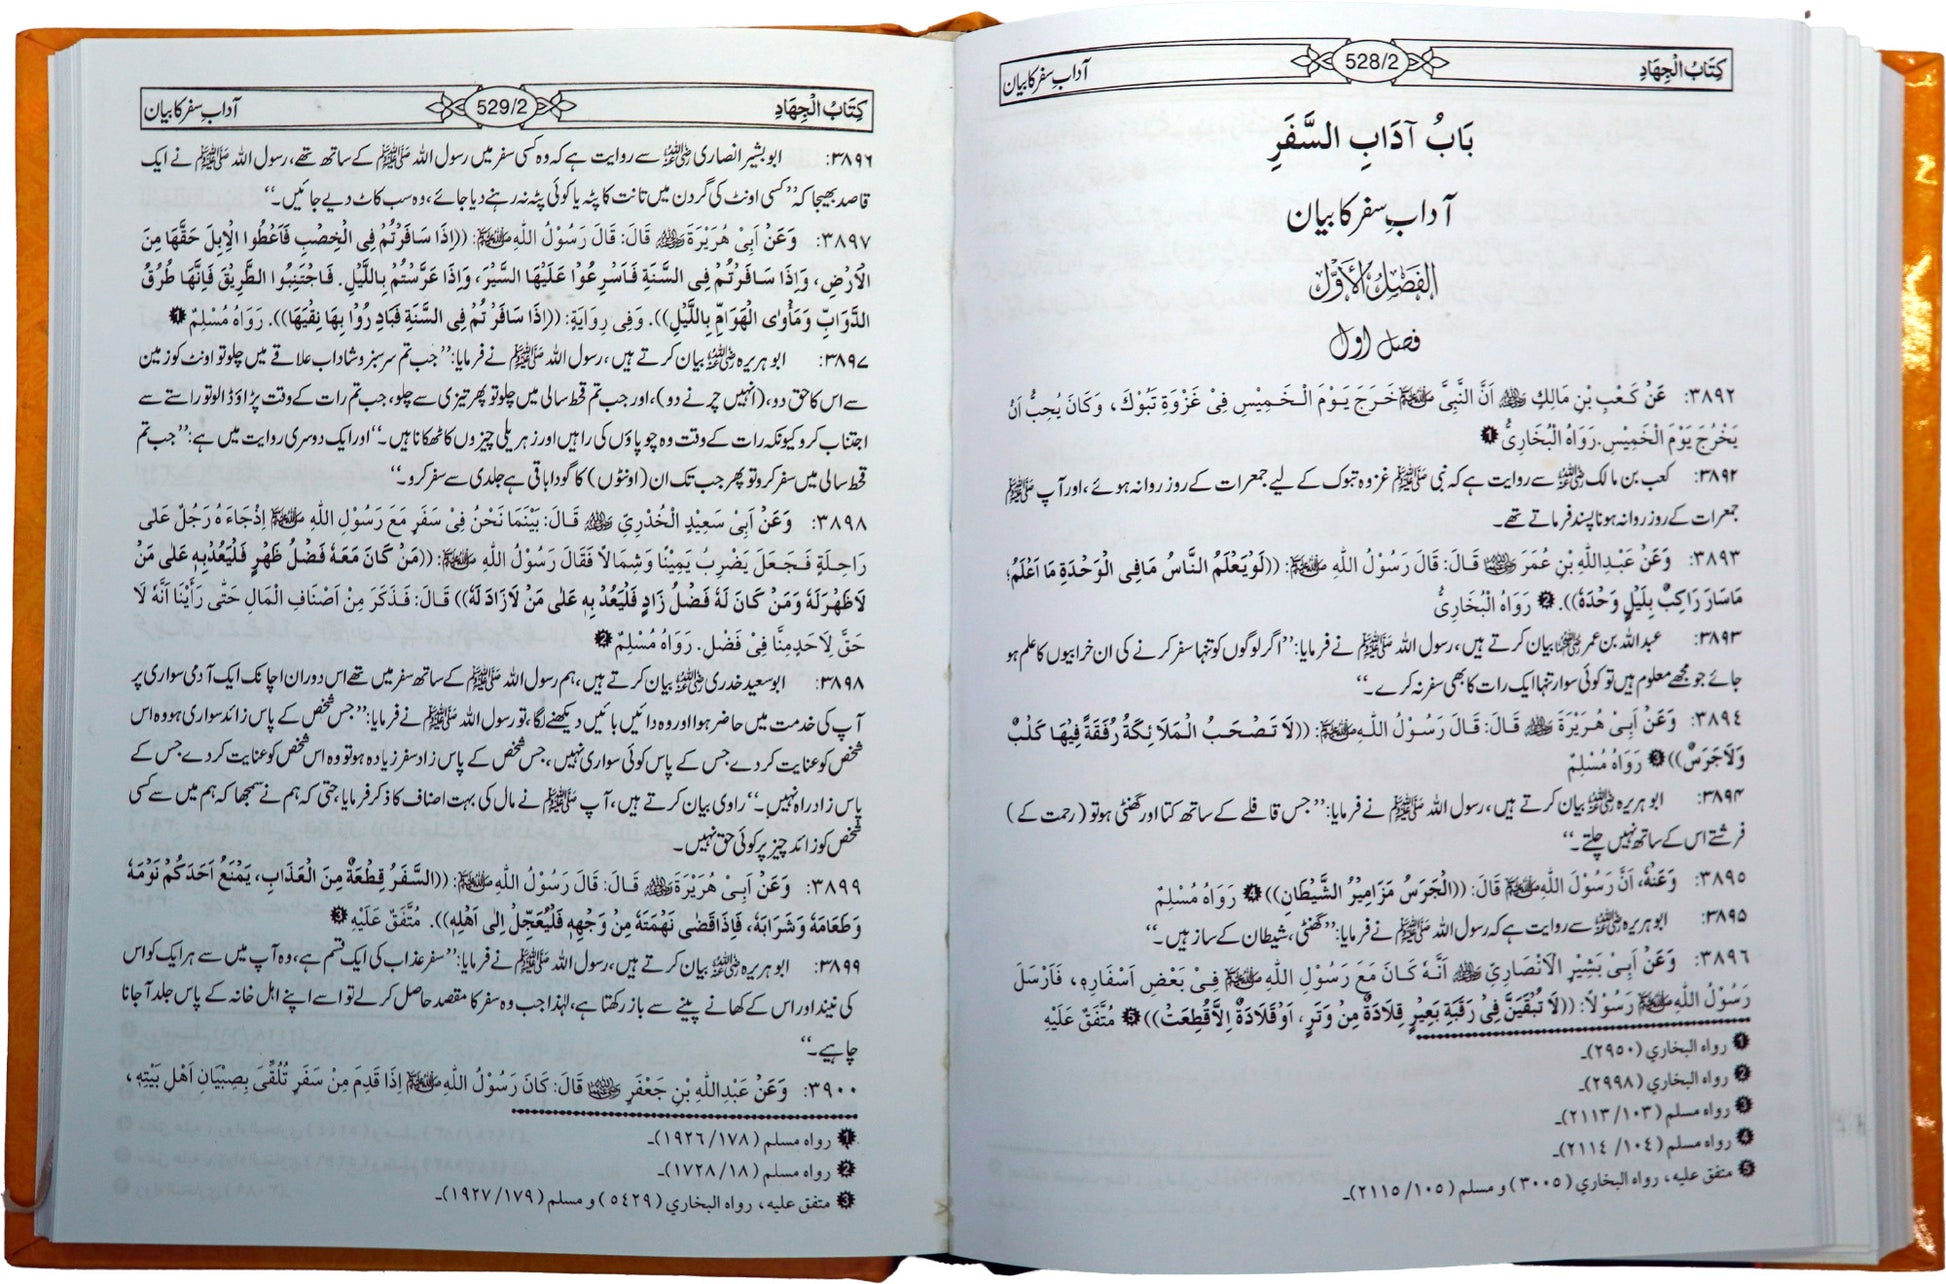 كِتَابُ الْجِهَادِ 528/2 آدابِ سفر کا بیان
بَابُ آدَابِ السَّفَرِ
آدابِ سفر کا بیان
الفَصْلُ الْأَوَّلُ
فصل اول
٣٨٩٢: عَنْ كَعْبِ بْنِ مَالِكٍ ؓ اَنَّ النَّبِيَّ ﷺ خَرَجَ يَوْمَ الْخَمِيْسِ فِيْ غَزْوَةِ تَبُوْكَ، وَكَانَ يُحِبُّ اَنْ
يَخْرُجَ يَوْمَ الْخَمِيْسِ. رَوَاهُ الْبُخَارِيُّ ❶
۳۸۹۲: کعب بن مالک ؓ سے روایت ہے کہ نبی ﷺ غزوہ تبوک کے لیے جمعرات کے روز روانہ ہوئے، اور آپ ﷺ
جمعرات کے روز روانہ ہونا پسند فرماتے تھے۔
٣٨٩٣: وَعَنْ عَبْدِاللّٰهِ بْنِ عُمَرَ ؓ قَالَ: قَالَ رَسُوْلُ اللّٰهِ ﷺ: ((لَوْيَعْلَمُ النَّاسُ مَافِى الْوَحْدَةِ مَا اَعْلَمُ؛
مَاسَارَ رَاكِبٌ بِلَيْلٍ وَحْدَهٗ)). ❷ رَوَاهُ الْبُخَارِىُّ
۳۸۹۳: عبداللہ بن عمر ؓ بیان کرتے ہیں، رسول اللہ ﷺ نے فرمایا: ’’اگر لوگوں کو تنہا سفر کرنے کی ان خرابیوں کا علم ہو
جائے جو مجھے معلوم ہیں تو کوئی سوار تنہا ایک رات کا بھی سفر نہ کرے۔‘‘
٣٨٩٤: وَعَنْ اَبِىْ هُرَيْرَةَ ؓ قَالَ: قَالَ رَسُوْلُ اللّٰهِ ﷺ: ((لَا تَصْحَبُ الْمَلَائِكَةُ رُفْقَةً فِيْهَا كَلْبٌ
وَلَاجَرَسٌ)) ❸ رَوَاهُ مُسْلِمٌ
۳۸۹۴: ابو ہریرہ ؓ بیان کرتے ہیں، رسول اللہ ﷺ نے فرمایا: ’’جس قافلے کے ساتھ کتا اور گھنٹی ہو تو (رحمت کے)
فرشتے اس کے ساتھ نہیں چلتے۔‘‘
٣٨٩٥: وَعَنْهُ، اَنَّ رَسُوْلَ اللّٰهِ ﷺ قَالَ: ((الْجَرَسُ مَزَامِيْرُ الشَّيْطَانِ)) ❹ رَوَاهُ مُسْلِمٌ
۳۸۹۵: ابو ہریرہ ؓ سے روایت ہے کہ رسول اللہ ﷺ نے فرمایا: ’’گھنٹی، شیطان کے ساز ہیں۔‘‘
٣٨٩٦: وَعَنْ اَبِىْ بَشِيْرِ الْاَنْصَارِيِّ ؓ اَنَّهٗ كَانَ مَعَ رَسُوْلِ اللّٰهِ ﷺ فِىْ بَعْضِ اَسْفَارِهٖ، فَاَرْسَلَ
رَسُوْلُ اللّٰهِ ﷺ رَسُوْلًا: ((لَا تُبْقَيَنَّ فِىْ رَقَبَةِ بَعِيْرٍ قِلَادَةٌ مِنْ وَتَرٍ، اَوْقَلَادَةٌ اِلَّاقُطِعَتْ)) ❺ مُتَّفَقٌ عَلَيْهِ
❶ رواه البخاري (٢٩٥٠)۔
❷ رواه البخاري (٢٩٩٨)۔
❸ رواه مسلم (١٠٣/ ٢١١٣)۔
❹ رواه مسلم (١٠٤/ ٢١١٤)۔
❺ متفق عليه، رواه البخاري (٣٠٠٥) و مسلم (١٠٥/ ٢١١٥)۔
كِتَابُ الْجِهَادِ 529/2 آدابِ سفر کا بیان
۳۸۹۶: ابوبشیر انصاری ؓ سے روایت ہے کہ وہ کسی سفر میں رسول اللہ ﷺ کے ساتھ تھے، رسول اللہ ﷺ نے ایک
قاصد بھیجا کہ ’’کسی اونٹ کی گردن میں تانت کا پٹہ یا کوئی پٹہ نہ رہنے دیا جائے، وہ سب کاٹ دیے جائیں۔‘‘
٣٨٩٧: وَعَنْ اَبِىْ هُرَيْرَةَ ؓ قَالَ: قَالَ رَسُوْلُ اللّٰهِ ﷺ: ((اِذَا سَافَرْتُمْ فِى الْخِصْبِ فَاَعْطُوا الْاِبِلَ حَقَّهَا مِنَ
الْاَرْضِ، وَاِذَا سَافَرْتُمْ فِى السَّنَةِ فَاَسْرِعُوْا عَلَيْهَا السَّيْرَ، وَاِذَا عَرَّسْتُمْ بِاللَّيْلِ. فَاجْتَنِبُوا الطَّرِيْقَ فَاِنَّهَا طُرُقُ
الدَّوَابِّ وَمَأْوٰى الْهَوَامِّ بِاللَّيْلِ)). وَفِىْ رِوَايَةٍ: ((اِذَا سَافَرْتُمْ فِى السَّنَةِ فَبَادِرُوْا بِهَا نِقْيَهَا)). رَوَاهُ مُسْلِمٌ ❶
۳۸۹۷: ابو ہریرہ ؓ بیان کرتے ہیں، رسول اللہ ﷺ نے فرمایا: ’’جب تم سرسبز و شاداب علاقے میں چلو تو اونٹ کو زمین
سے اس کا حق دو، (انہیں چرنے دو)، اور جب تم قحط سالی میں چلو تو پھر تیزی سے چلو، جب تم رات کے وقت پڑاؤ ڈالو تو راستے سے
اجتناب کرو کیونکہ رات کے وقت وہ چوپاؤں کی راہیں اور زہریلی چیزوں کا ٹھکانا ہیں۔‘‘ اور ایک دوسری روایت میں ہے: ’’جب تم
قحط سالی میں سفر کرو تو پھر جب تک ان (اونٹوں) کا گودا باقی ہے جلدی سے سفر کرو۔‘‘
٣٨٩٨: وَعَنْ اَبِىْ سَعِيْدٍ الْخُدْرِيِّ ؓ قَالَ: بَيْنَمَا نَحْنُ فِىْ سَفَرٍ مَعَ رَسُوْلِ اللّٰهِ ﷺ اِذْجَاءَهُ رَجُلٌ عَلٰى
رَاحِلَةٍ فَجَعَلَ يَضْرِبُ يَمِيْنًا وَشِمَالًا فَقَالَ رَسُوْلُ اللّٰهِ ﷺ: ((مَنْ كَانَ مَعَهٗ فَضْلُ ظَهْرٍ فَلْيَعُدْبِهٖ عَلٰى مَنْ
لَاظَهْرَلَهٗ وَمَنْ كَانَ لَهٗ فَضْلُ زَادٍ فَلْيَعُدْ بِهٖ عَلٰى مَنْ لَازَادَ لَهٗ)) قَالَ: فَذَكَرَ مِنْ اَصْنَافِ الْمَالِ حَتّٰى رَأَيْنَا اَنَّهٗ لَا
حَقَّ لِاَحَدٍمِنَّا فِىْ فَضْلٍ. رَوَاهُ مُسْلِمٌ ❷
۳۸۹۸: ابوسعید خدری ؓ بیان کرتے ہیں، ہم رسول اللہ ﷺ کے ساتھ سفر میں تھے اس دوران اچانک ایک آدمی سواری پر
آپ کی خدمت میں حاضر ہوا اور وہ دائیں بائیں دیکھنے لگا، تو رسول اللہ ﷺ نے فرمایا: ’’جس شخص کے پاس زائد سواری ہو وہ اس
شخص کو عنایت کر دے جس کے پاس کوئی سواری نہیں، جس شخص کے پاس زاد سفر زیادہ ہو تو وہ اس شخص کو عنایت کر دے جس کے
پاس زاد راہ نہیں۔‘‘ راوی بیان کرتے ہیں، آپ ﷺ نے مال کی بہت اصناف کا ذکر فرمایا، حتی کہ ہم نے سمجھا کہ ہم میں سے کسی
شخص کو زائد چیز پر کوئی حق نہیں۔
٣٨٩٩: وَعَنْ اَبِىْ هُرَيْرَةَ ؓ قَالَ: قَالَ رَسُوْلُ اللّٰهِ ﷺ: ((السَّفَرُ قِطْعَةٌ مِنَ الْعَذَابِ، يَمْنَعُ اَحَدَكُمْ نَوْمَهٗ
وَطَعَامَهٗ وَشَرَابَهٗ، فَاِذَاقَضٰى نَهْمَتَهٗ مِنْ وَجْهِهٖ فَلْيُعَجِّلْ اِلٰى اَهْلِهٖ)). مُتَّفَقٌ عَلَيْهِ ❸
۳۸۹۹: ابو ہریرہ ؓ بیان کرتے ہیں، رسول اللہ ﷺ نے فرمایا: ’’سفر عذاب کی ایک قسم ہے، وہ آپ میں سے ہر ایک کو اس
کی نیند اور اس کے کھانے پینے سے باز رکھتا ہے، لہٰذا جب وہ سفر کا مقصد حاصل کر لے تو اسے اپنے اہل خانہ کے پاس جلد آ جانا
چاہیے۔‘‘
٣٩٠٠: وَعَنْ عَبْدِاللّٰهِ بْنِ جَعْفَرٍ ؓ قَالَ: كَانَ رَسُوْلُ اللّٰهِ ﷺ اِذَا قَدِمَ مِنْ سَفَرٍ تُلُقِّىَ بِصِبْيَانِ اَهْلِ بَيْتِهٖ،
❶ رواه مسلم (١٧٨/ ١٩٢٦)۔
❷ رواه مسلم (١٨/ ١٧٢٨)۔
❸ متفق عليه، رواه البخاري (٥٤٢٩) و مسلم (١٧٩/ ١٩٢٧)۔